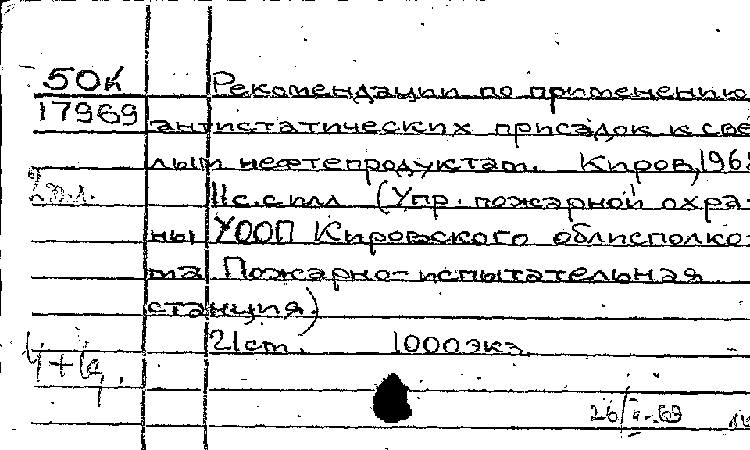 50К
Рекомендации по применению
17969
антистатических присадок к све
лым нефтепродуктам. Киров, 196
2 экз.
11с.с илл (Упр. пожарной охра-
ны УООП Кировского облисполко-
ма Пожарно-испытательная
станция)
21см. 1000экз.
26/